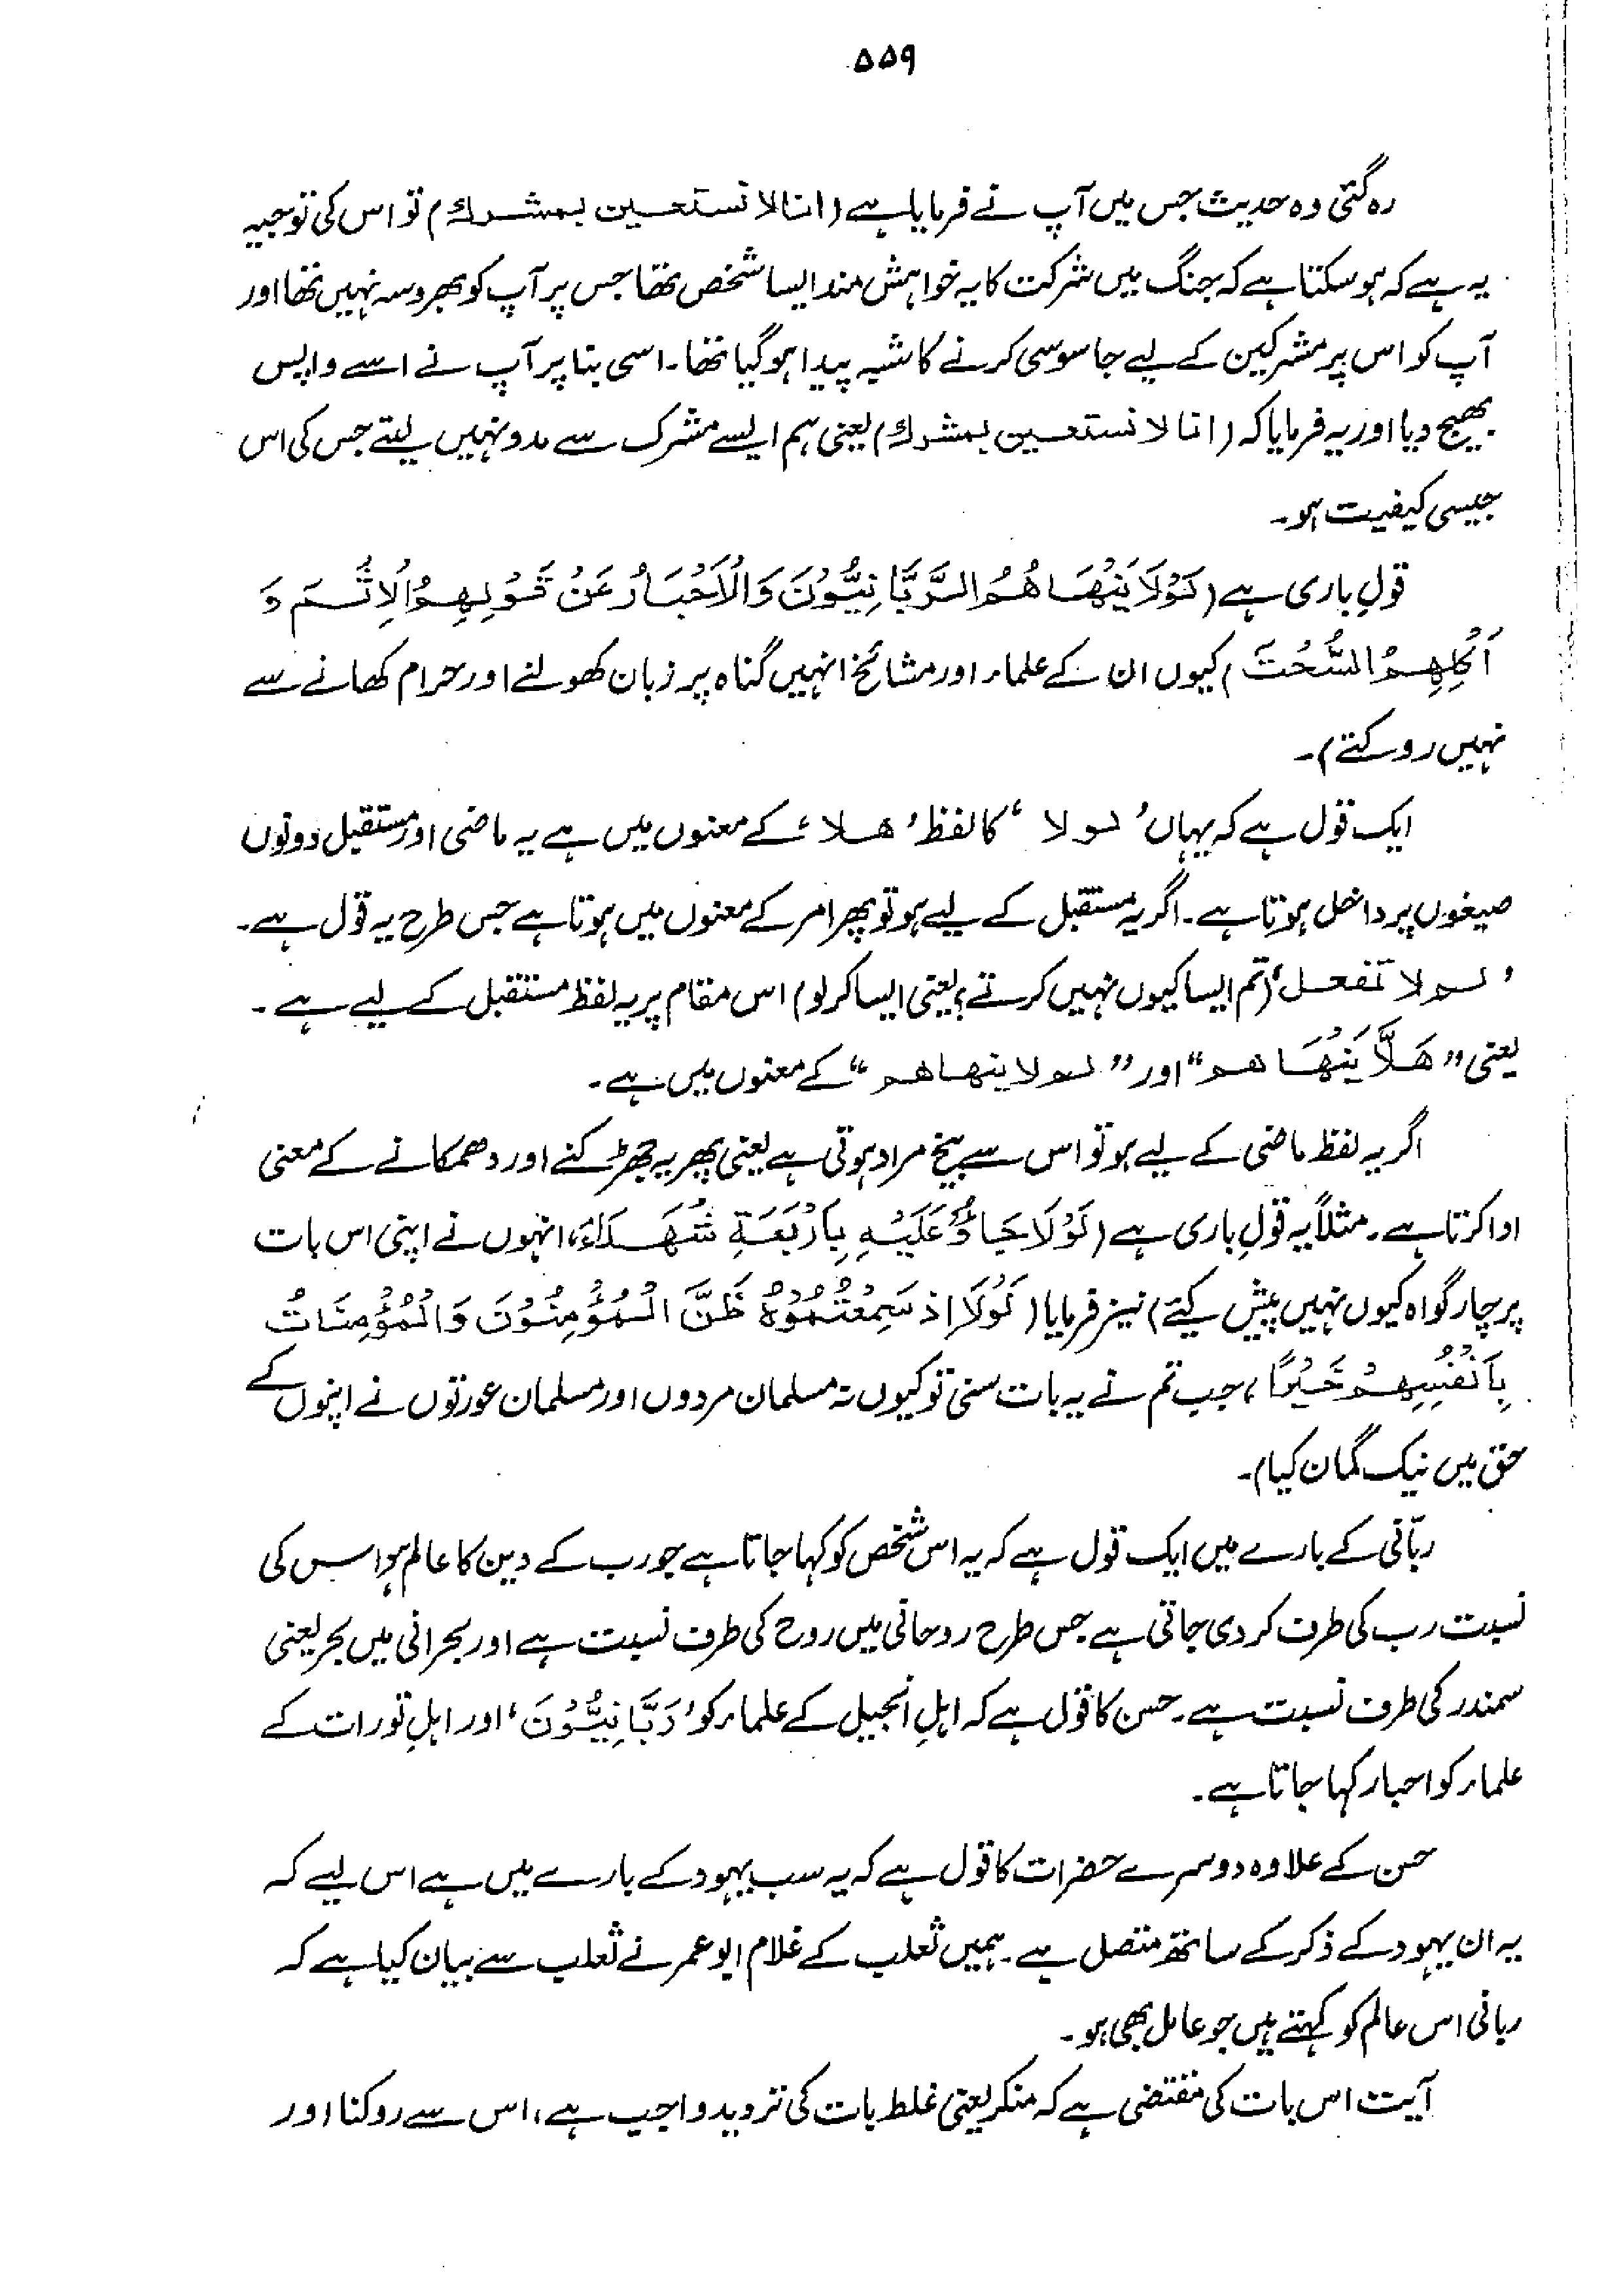 ۵۵۹
رہ گئی وہ حدیث جس میں آپ نے فرمایا ہے (انا لا نستعین بمشرك) تو اس کی توجیہ
یہ ہے کہ ہوسکتا ہے کہ جنگ میں شرکت کا یہ خواہش مند ایسا شخص تھا جس پر آپ کو بھروسہ نہیں تھا اور
آپ کو اس پر مشرکین کے لیے جاسوسی کرنے کا شبہ پیدا ہوگیا تھا۔ اسی بنا پر آپ نے اسے واپس
بھیج دیا اور یہ فرمایا کہ (انا لا نستعین بمشرك) یعنی ہم ایسے مشرک سے مدد نہیں لیتے جس کی اس
جیسی کیفیت ہو۔
قولِ باری ہے (لَوْلَا يَنْهَاهُمُ الرَّبَّانِيُّوْنَ وَالْاَحْبَارُ عَنْ قَوْلِهِمُ الْاِثْمَ وَ
اَكْلِهِمُ السُّحْتَ) کیوں ان کے علماء اور مشائخ انہیں گناہ پر زبان کھولنے اور حرام کھانے سے
نہیں روکتے)۔
ایک قول ہے کہ یہاں ’لولا‘ کا لفظ ’ھلا‘ کے معنوں میں ہے یہ ماضی اور مستقبل دونوں
صیغوں پر داخل ہوتا ہے۔ اگر یہ مستقبل کے لیے ہو تو پھر امر کے معنوں میں ہوتا ہے جس طرح یہ قول ہے۔
’لولا تفعل‘ (تم ایسا کیوں نہیں کرتے؟ یعنی ایسا کر لو) اس مقام پر یہ لفظ مستقبل کے لیے ہے۔
یعنی ”هَلَّا يَنْهَاهم“ اور ”لولا ینھاھم“ کے معنوں میں ہے۔
اگر یہ لفظ ماضی کے لیے ہو تو اس سے بیخ مراد ہوتی ہے یعنی پھر یہ جھڑکنے اور دھمکانے کے معنی
ادا کرتا ہے۔ مثلاً یہ قولِ باری ہے (لَوْلَا جَاؤُ عَلَيْهِ بِاَرْبَعَةِ شُهَدَاءَ، انہوں نے اپنی اس بات
پر چار گواہ کیوں نہیں پیش کیئے) نیز فرمایا (لَوْلَا اِذ سَمِعْتُمُوْهُ ظَنَّ الْمُؤْمِنُوْنَ وَالْمُؤْمِنَاتُ
بِاَنْفُسِهِمْ خَيْرًا، جب تم نے یہ بات سنی تو کیوں نہ مسلمان مردوں اور مسلمان عورتوں نے اپنوں کے
حق میں نیک گمان کیا)۔
ربّانی کے بارے میں ایک قول ہے کہ یہ اس شخص کو کہا جاتا ہے جو رب کے دین کا عالم ہو اس کی
نسبت رب کی طرف کر دی جاتی ہے جس طرح روحانی میں روح کی طرف نسبت ہے اور بحرانی میں بحر یعنی
سمندر کی طرف نسبت ہے۔ حسن کا قول ہے کہ اہلِ انجیل کے علماء کو ’رَبَّانِيُّوْنَ‘ اور اہلِ تورات کے
علماء کو احبار کہا جاتا ہے۔
حسن کے علاوہ دوسرے حضرات کا قول ہے کہ یہ سب یہود کے بارے میں ہے اس لیے کہ
یہ ان یہود کے ذکر کے ساتھ متصل ہے۔ ہمیں ثعلب کے غلام ابو عمر نے ثعلب سے بیان کیا ہے کہ
ربانی اس عالم کو کہتے ہیں جو عامل بھی ہو۔
آیت اس بات کی مقتضی ہے کہ منکر یعنی غلط بات کی تردید واجب ہے، اس سے روکنا اور